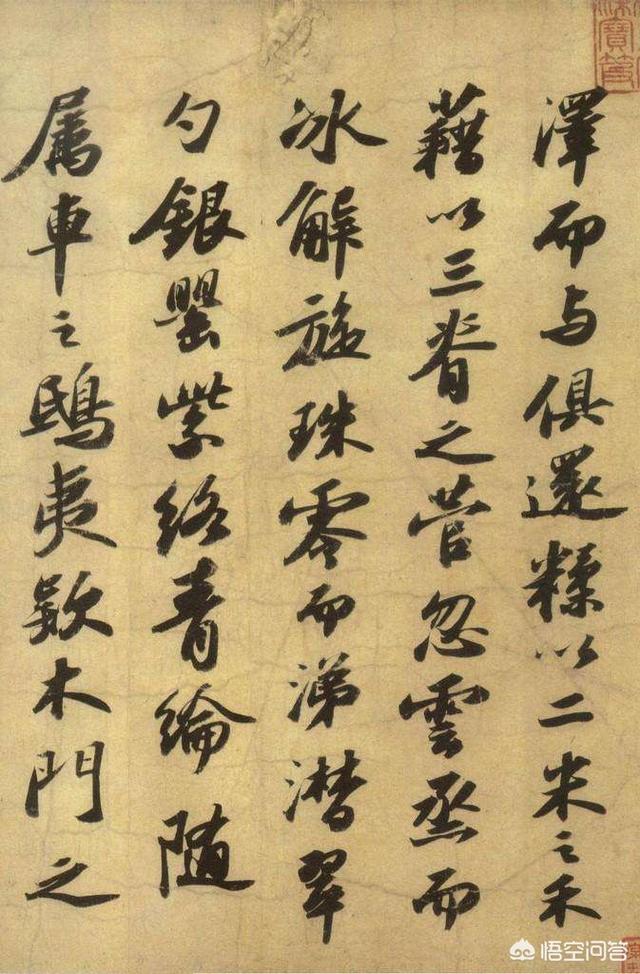 澤而与俱還糅以二米之禾
藉以三脊之菅忽雲烝而
冰解旋珠零而涕潸翠
勺銀罌紫絡青綸随
属車之鴟夷欵木門之
悟空问答